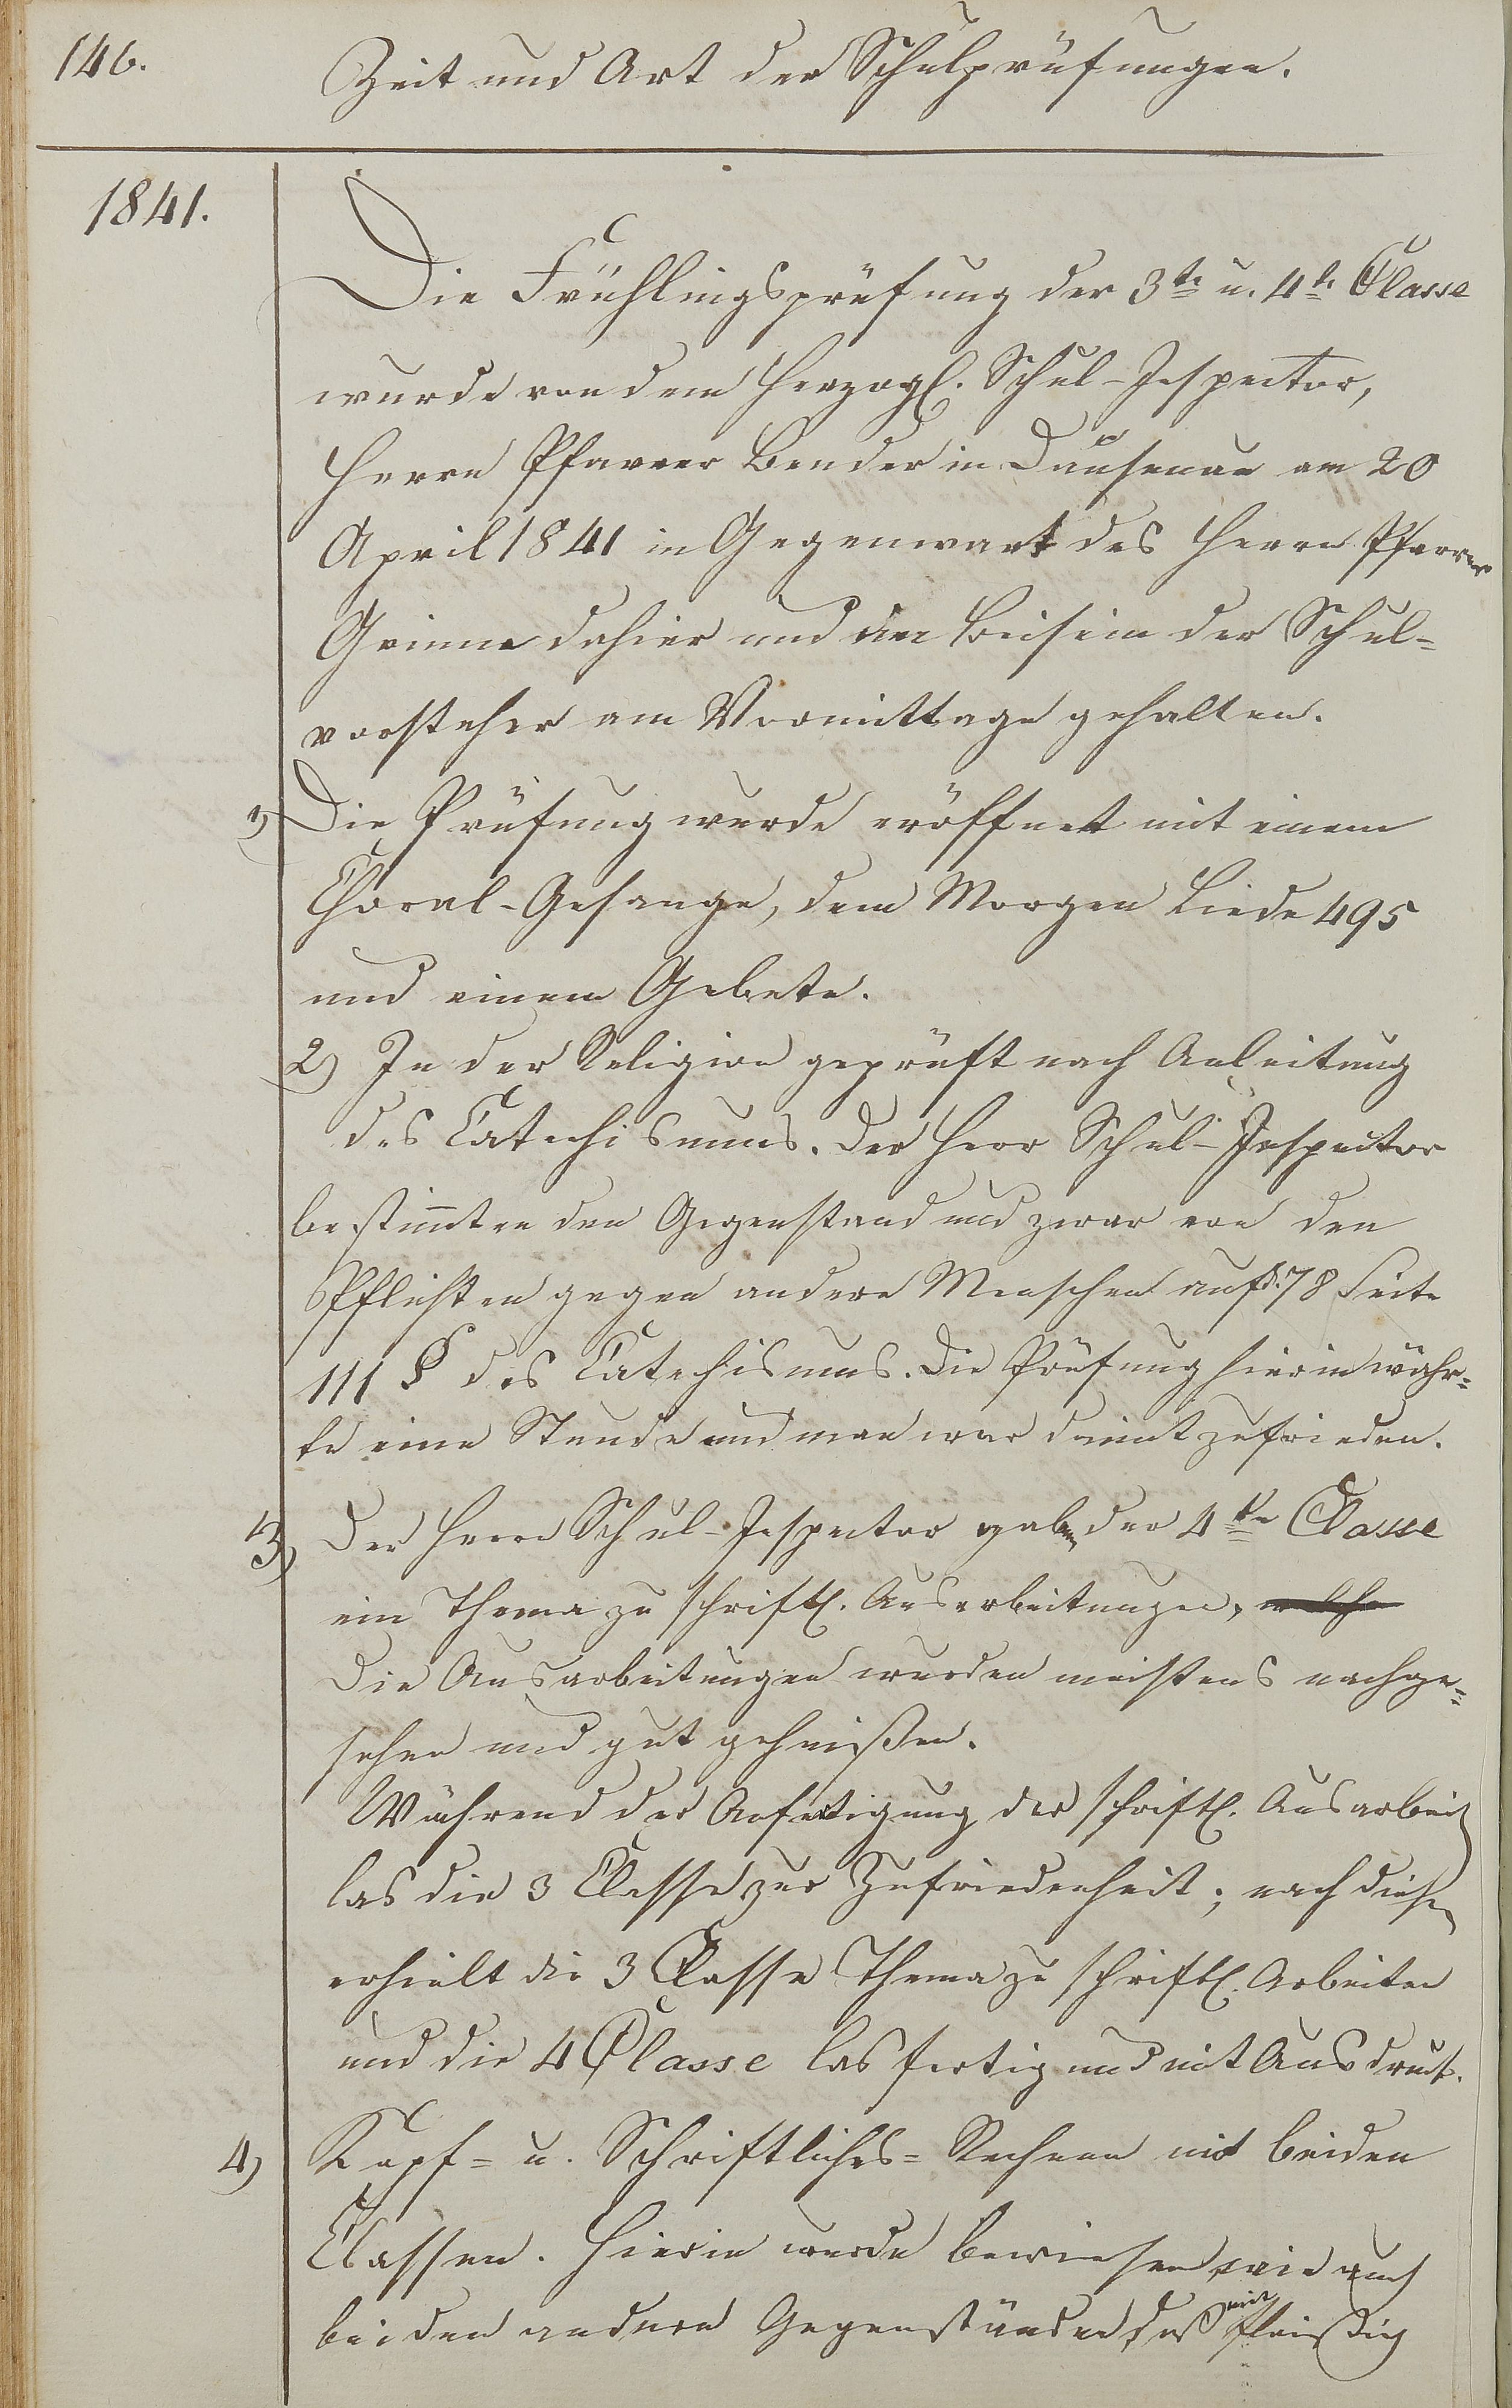 146.
Zeit und Art der Schulprüfungen.
1841.
Die Frühlingsprüfung der 3te u. 4te Classe
wurde von dem Herzogl. Schul-Inspector,
Herrn Pfarrer Bender in Dausenau am 20
April 1841 in Gegenwart des Herrn Pfarrer
Grimm dahier und im Beisein der Schul-
vorsteher am Vormittage gehalten.
1) Die Prüfung wurde eröffnet mit einem
Choral-Gesange, dem Morgen Liede 495
und einem Gebete.
2) In der Religion geprüft nach Anleitung
des Catechismus. Der Herr Schul-Inspector
bestim̅ten den Gegenstand und zwar von den
Pflichten gegen andere Menschen auf d. 78 Seite
111 § des Catechismus. Die Prüfung hierin währ-
te eine Stunde und man war damit zufrieden.
3) Der Herr Schul-Inspector gaben der 4te Classe
ein Thema zu schriftl. Ausarbeitungen, welche
Die Ausarbeitungen wurden meistens nachge-
sehen und gut geheißen.
Während der Anfertigung der schriftl. Ausarbeit
las die 3 Classe zur Zufriedenheit; nach diesen
erhielt die 3 Classe Thema zu schriftl. Arbeiten
und die 4 Classe las fertig und mit Ausdruck.
4) Kopf- u. Schriftliches-Rechnen mit beiden
Classen. Hierin wurde bewiesen, wie auch
bei den andern Gegenständen, daß mit fleißig